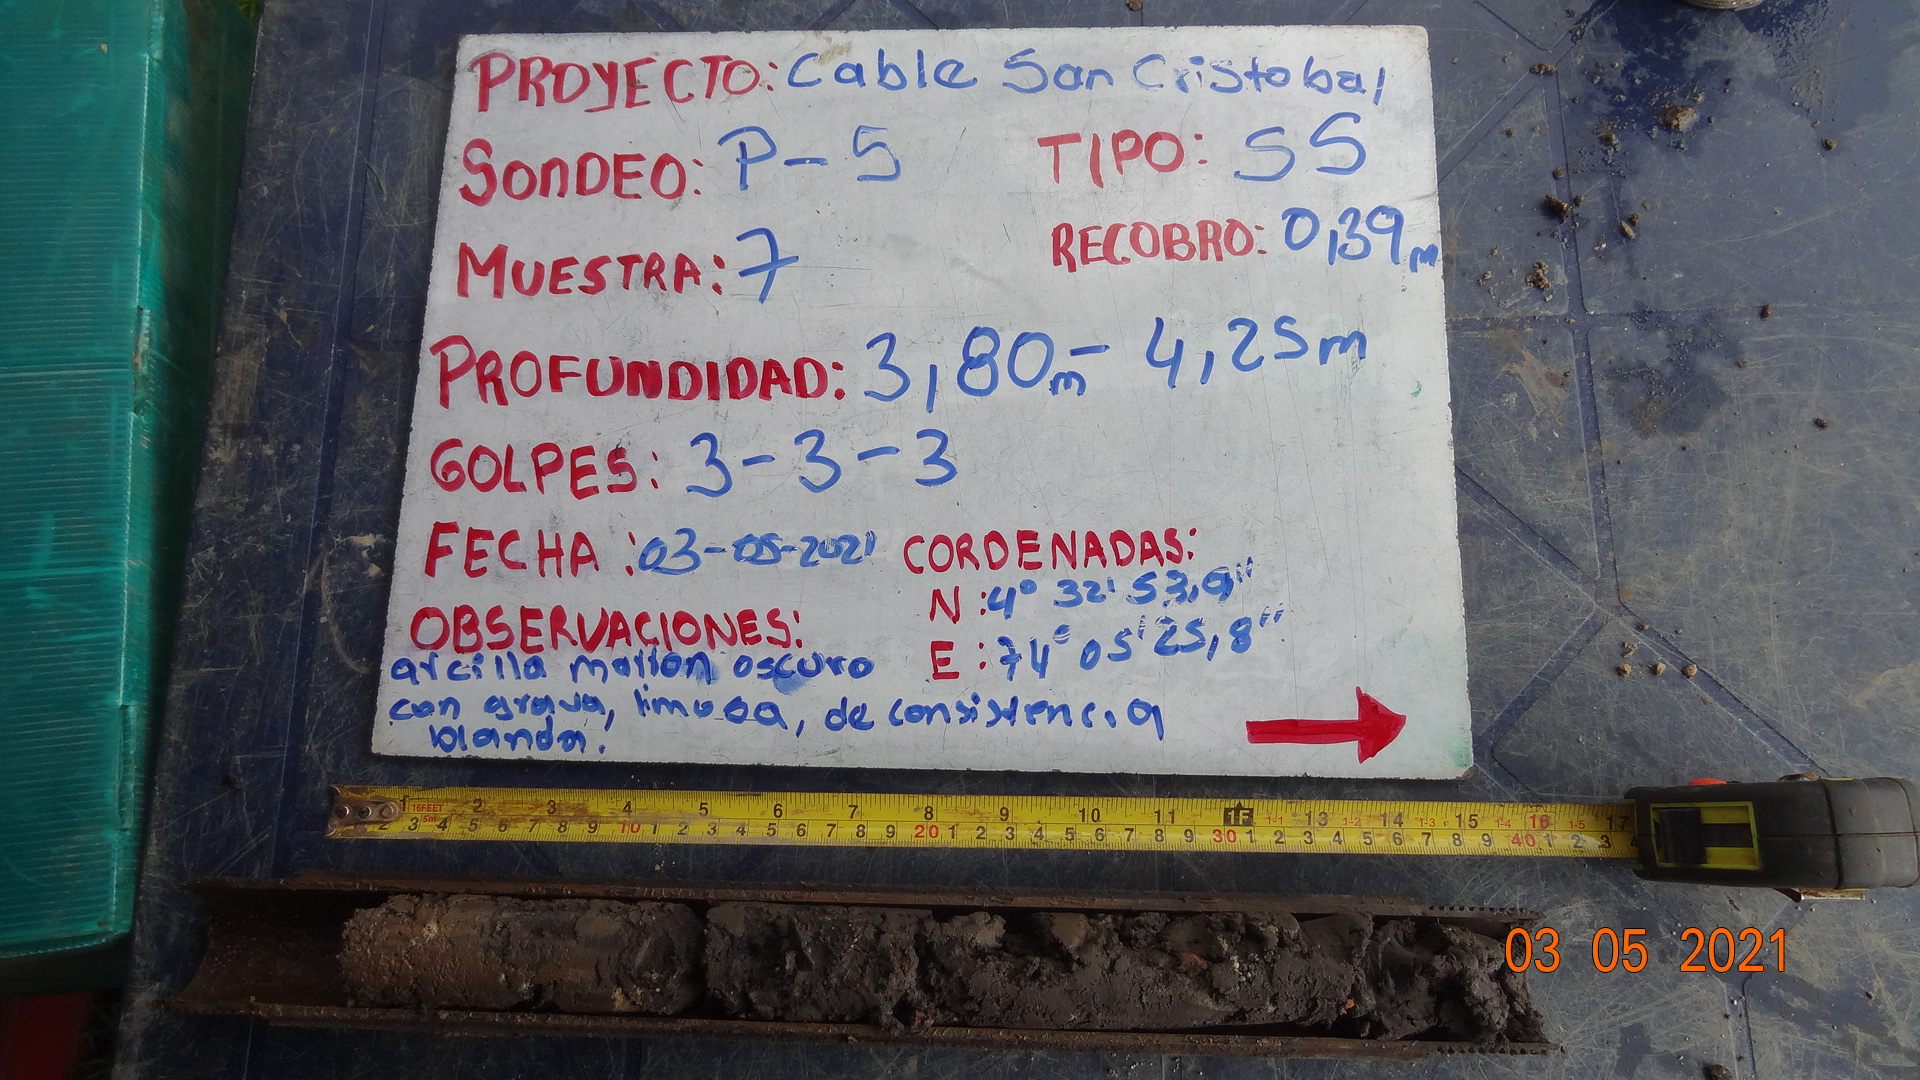 PROYECTO: Cable San Cristobal
SONDEO: P-5 TIPO: SS
MUESTRA: 7 RECOBRO: 0,39m
PROFUNDIDAD: 3,80m - 4,25m
GOLPES: 3-3-3
FECHA: 03-05-2021 CORDENADAS:
N: 4° 32' 53,9"
E: 74° 05' 25,8"
OBSERVACIONES:
arcilla marron oscuro
con grava, limosa, de consistencia
blanda.
1 16FEET 2 3 4 5 6 7 8 9 10 11 1F 1-1 13 1-2 14 1-3 15 1-4 16 1-5 17
2 3 5m 4 5 6 7 8 9 10 1 2 3 4 5 6 7 8 9 20 1 2 3 4 5 6 7 8 9 30 1 2 3 4 5 6 7 8 9 40 1 2 3
03 05 2021